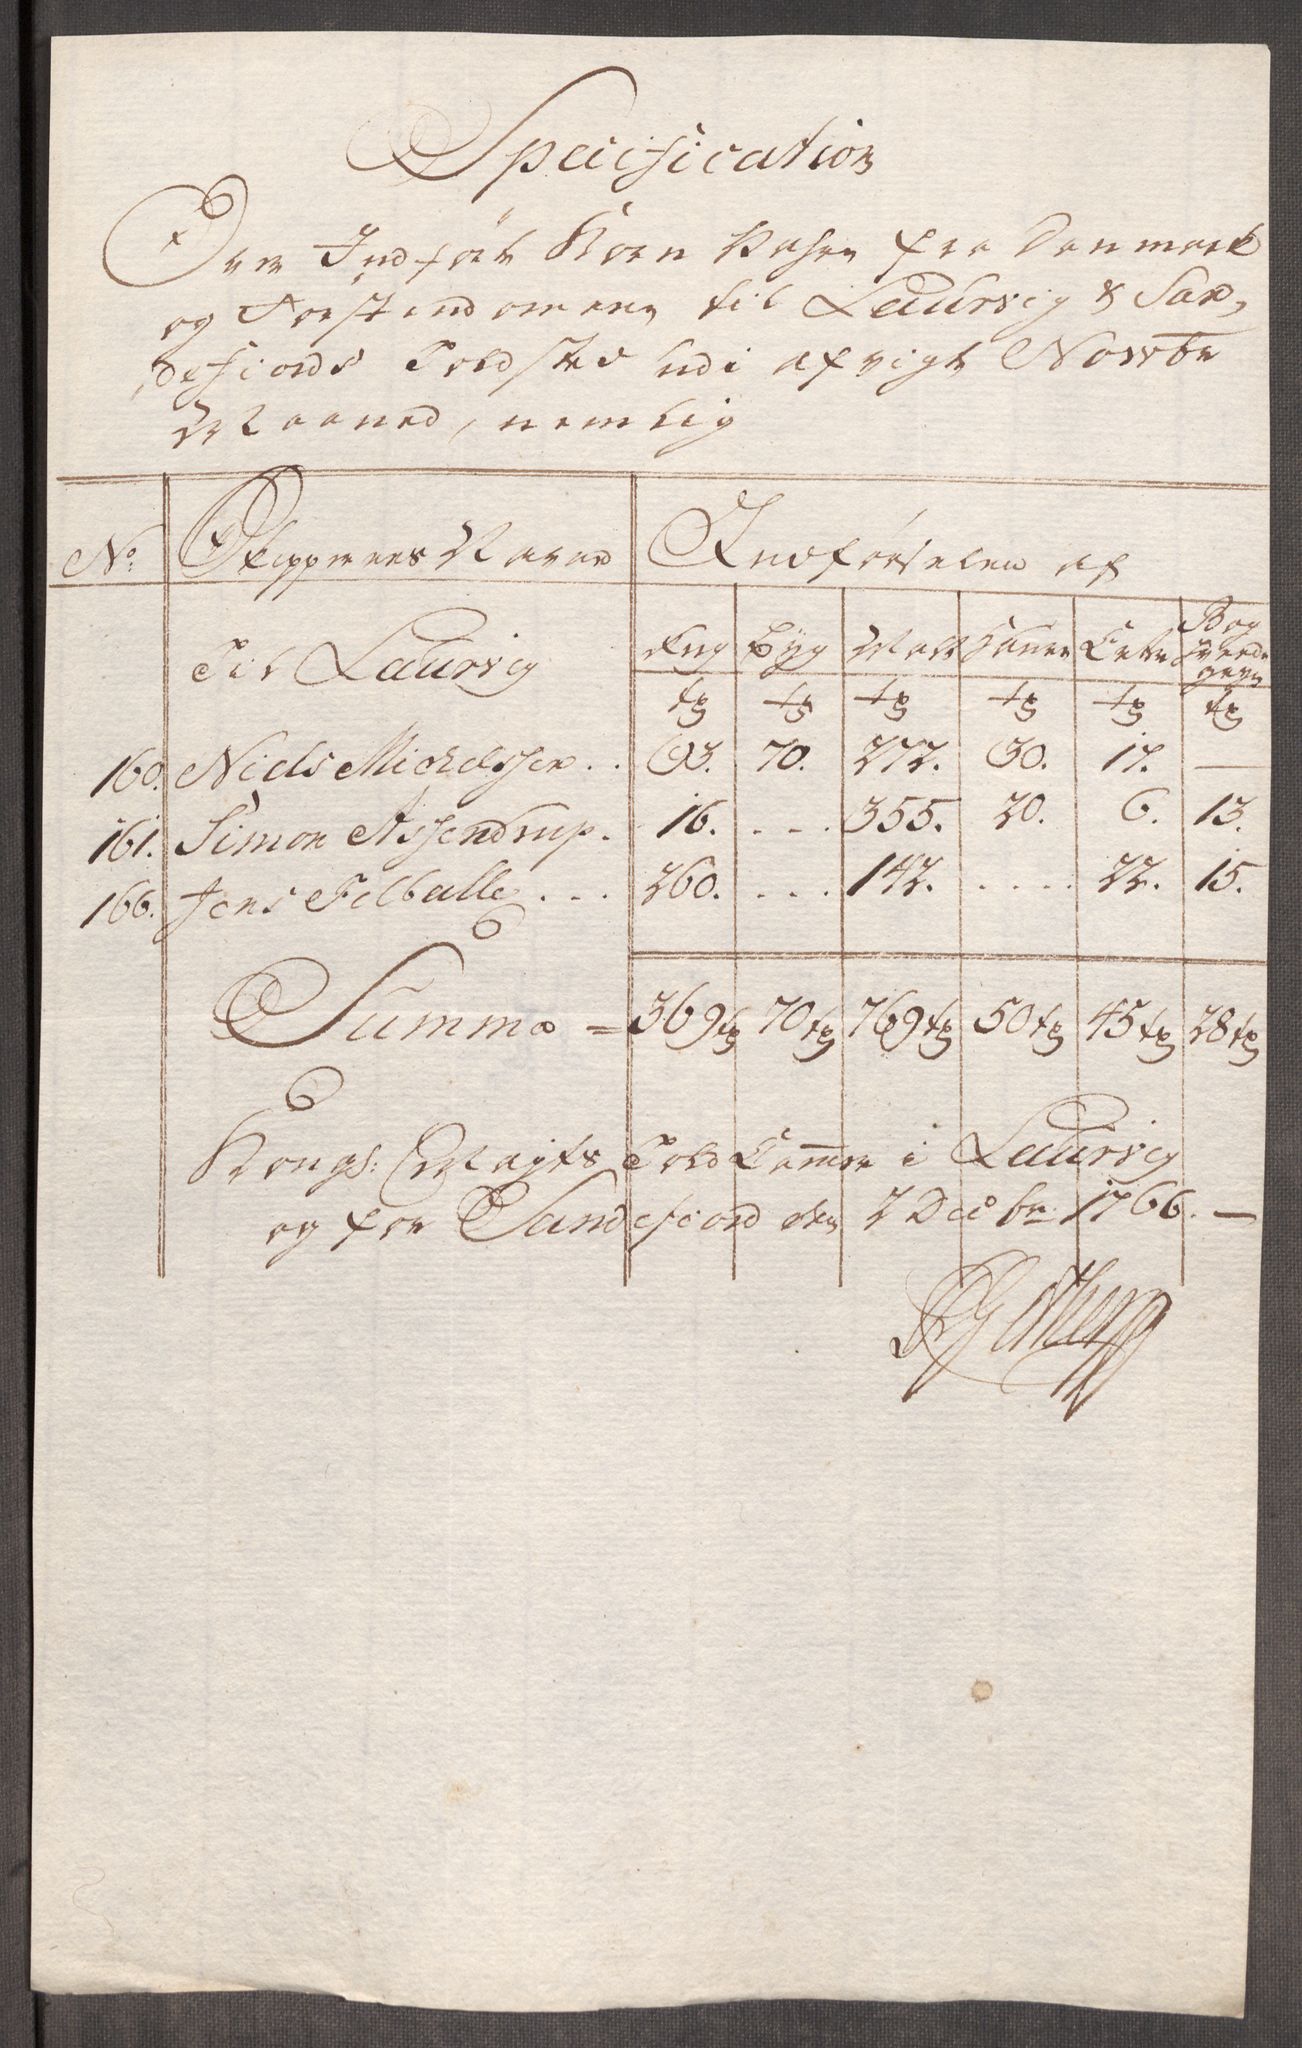 Specification
Over Indført Korn Vahre fra Danmark
og Førstendømene til Laurvig & San,
defiords Toldsted udi afvigte Novvbr
Maaned, nemlig
No: Skippernes Navne Indførselen af
Til Laurvig Rug Byg Malt Havre Erter Bog hvede gryn
tr tr tr tr tr tr
160. Niels Michelssen . . 93. 70. 272. 30. 17. —
161. Simon Assendrup . 16. . . . 355. 20. 6. 13.
166. Jens Felballe . . . 260. . . . 142. . . . . 22. 15.
Summa = 369 tr 70 tr 769 tr 50 tr 45 tr 28 tr
Kongs: Mayts Told Cammer i Laurvig
og for Sandefiord den 2 Decbr 1766. —